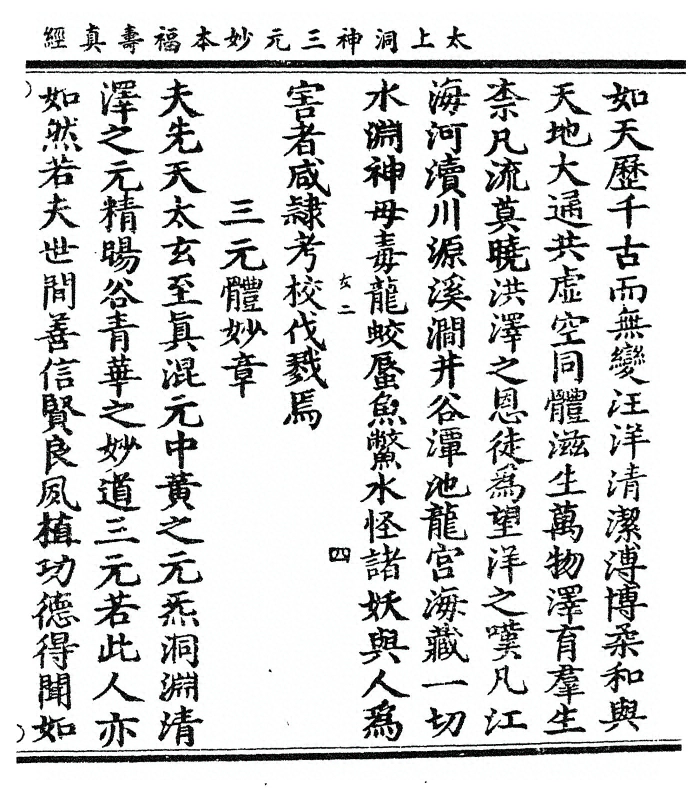 太上洞神三元妙本福壽真經
如天歷千古而無變汪洋清潔溥博柔和與
天地大通共虛空同體滋生萬物澤育羣生
柰凡流莫曉洪澤之恩徒為望洋之嘆凡江
海河瀆川源溪澗井谷潭池龍宮海藏一切
水淵神毋毒龍蛟蜃魚鱉水怪諸妖與人為
害者咸隸考校伐戮焉
女二
四
三元體妙章
夫先天太玄至眞混元中黃之元炁洞淵清
澤之元精暘谷青華之妙道三元若此人亦
如然若夫世間善信賢良夙植功德得聞如